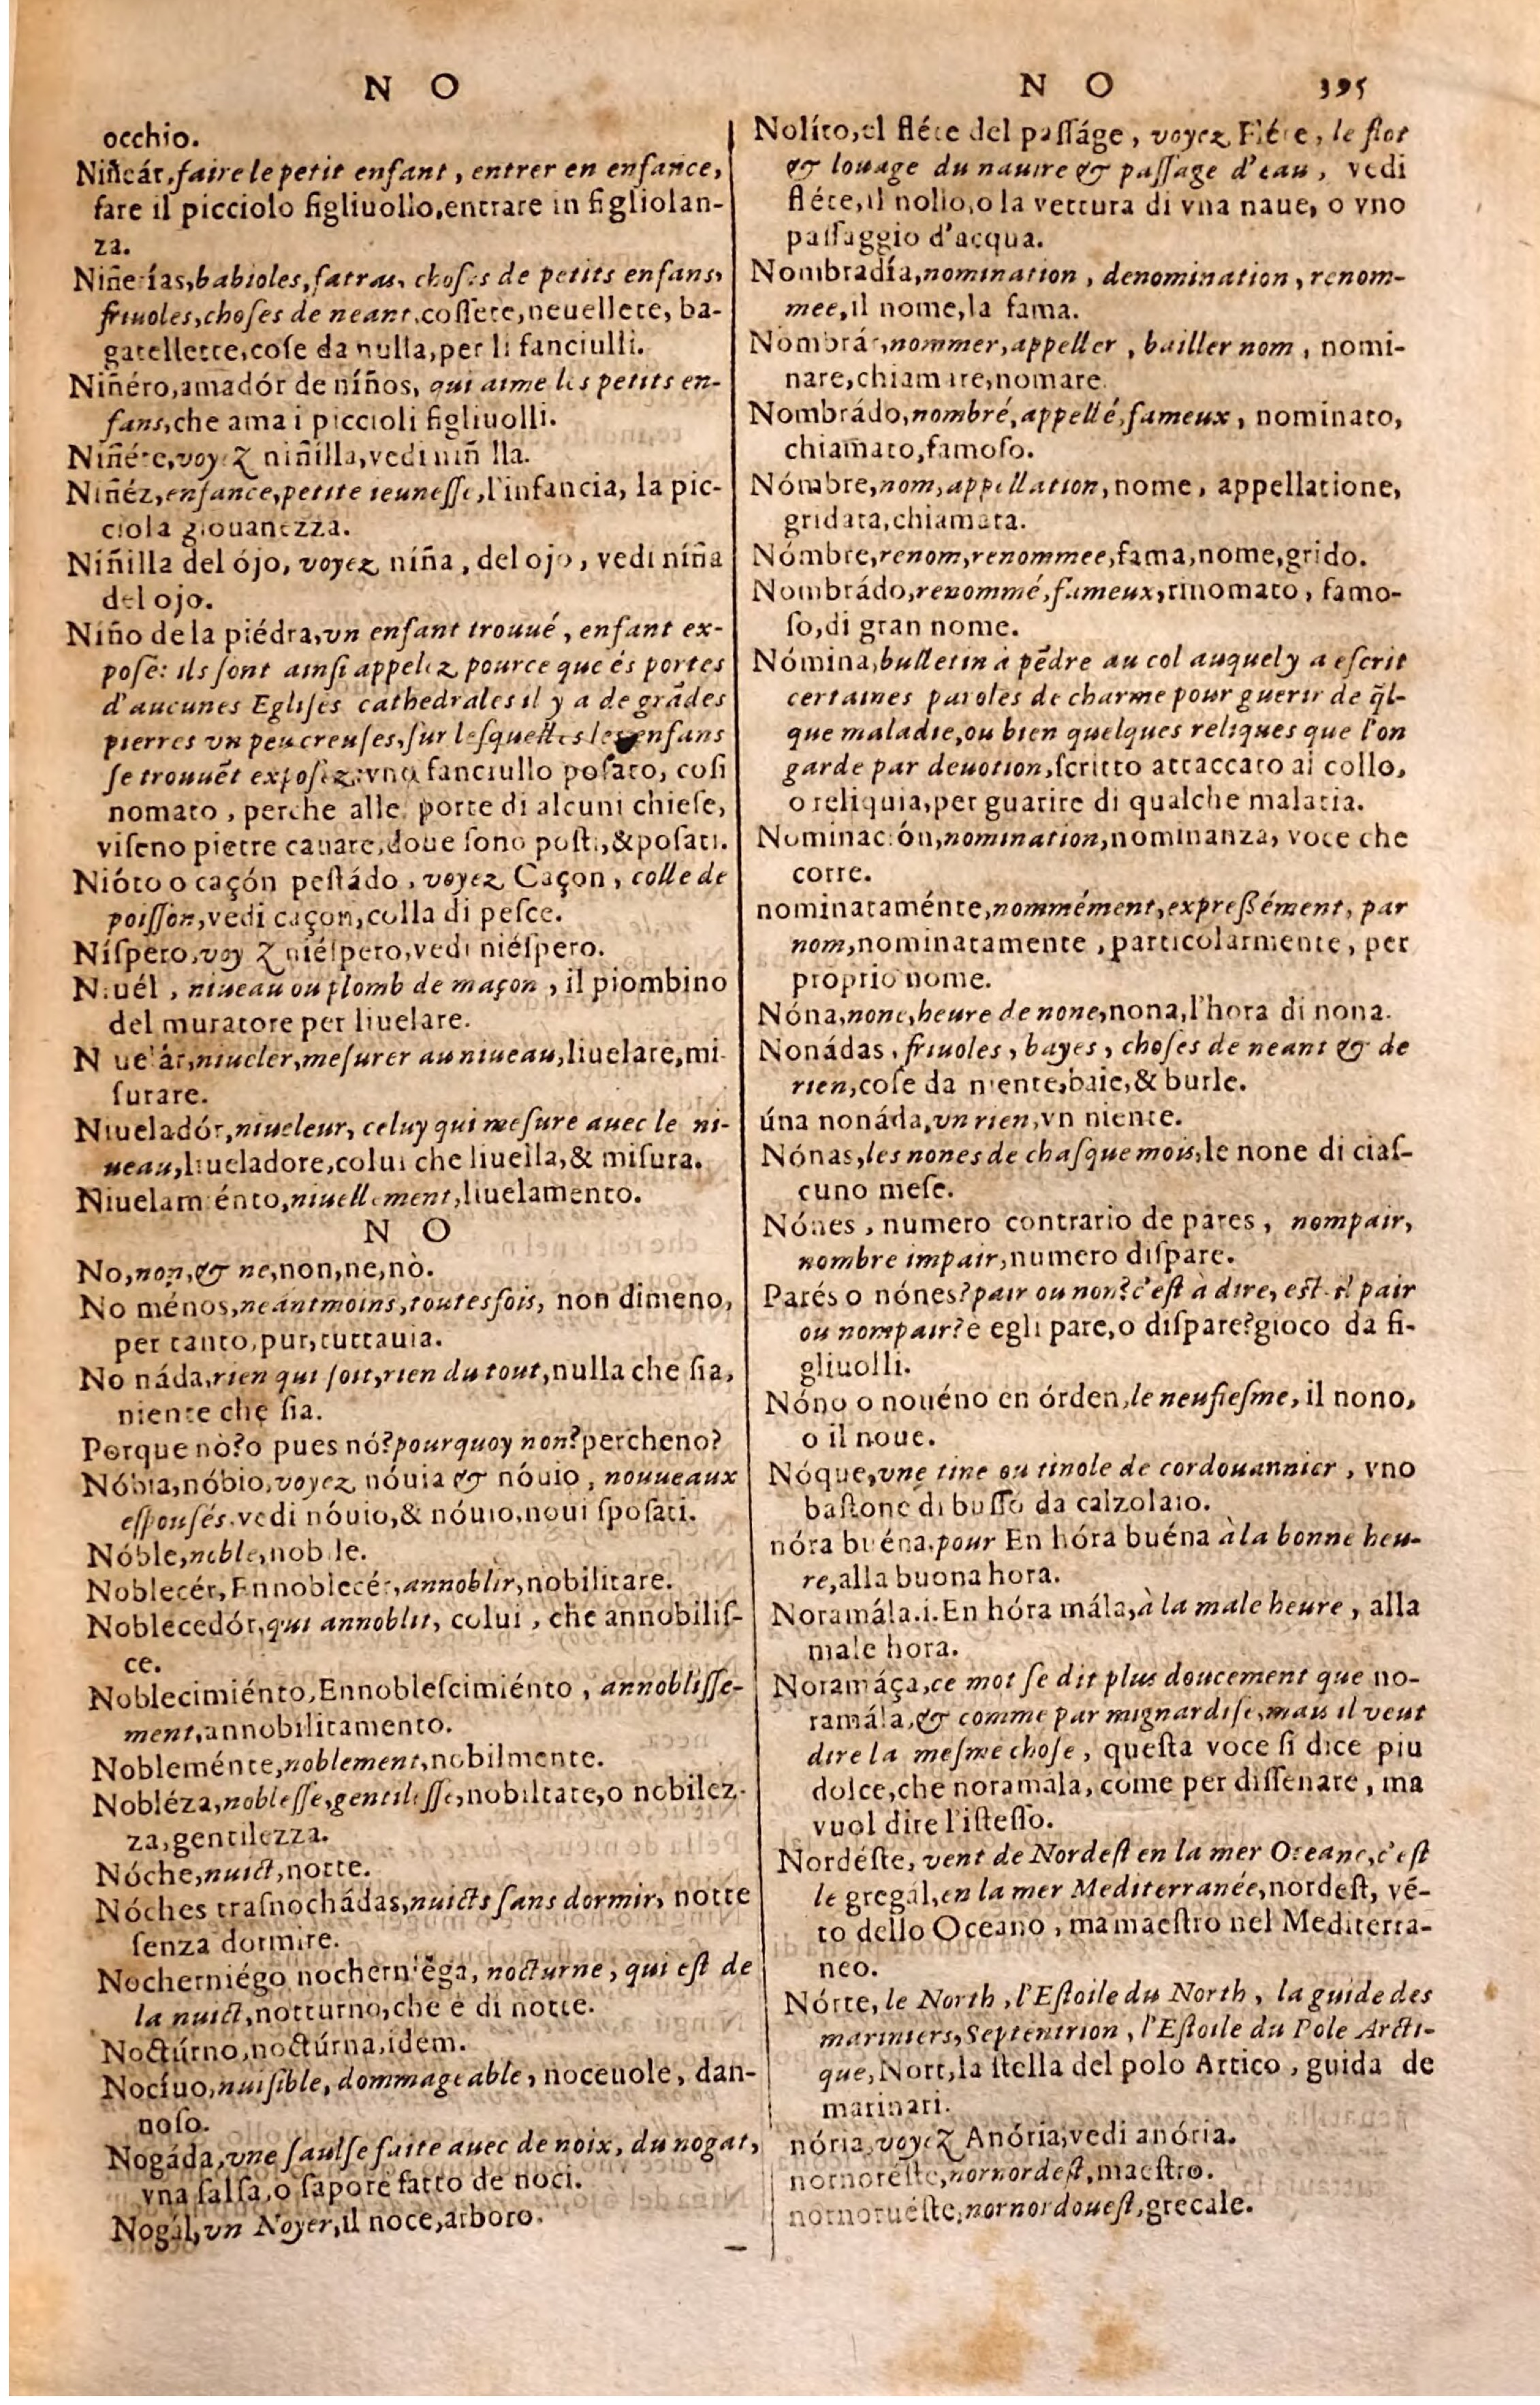 N O
occhio.
Niñeár, faire le petit enfant, entrer en enfance,
fare il picciolo figliuollo, entrare in figliolan-
za.
Niñerías, babioles, fatras, choses de petits enfans,
friuoles, choses de neant, cossete, neuellete, ba-
gatellette, cose da nulla, per li fanciulli.
Niñéro, amadór de níños, qui aime les petits en-
fans, che ama i piccioli figliuolli.
Niñéte, voyez niñilla, vedi niñ lla.
Niñéz, enfance, petite ieunesse, l'infancia, la pic-
ciola giouanezza.
Niñilla del ójo, voyez niña, del ojo, vedi níña
del ojo.
Niño de la piédra, vn enfant trouué, enfant ex-
posé: ils sont ainsi appelez pource que és portes
d'aucunes Eglises cathedrales il y a de grãdes
pierres vn peu creuses, sur lesquelles les enfans
se trouuẽt exposez: vno fanciullo posato, cosi
nomato, perche alle porte di alcuni chiese,
viseno pietre cauate, doue sono posti, & posati.
Nióto o caçón pestádo, voyez Caçon, colle de
poisson, vedi caçon, colla di pesce.
Níspero, voyez niéspero, vedi niéspero.
Niuél, niueau ou plomb de maçon, il piombino
del muratore per liuelare.
Niuelár, niueler, mesurer au niueau, liuelare, mi-
surare.
Niueladór, niueleur, celuy qui mesure auec le ni-
ueau, liueladore, colui che liuella, & misura.
Niuelamiénto, niuellement, liuelamento.
N O
No, non, & ne, non, ne, nò.
No ménos, neantmoins, toutesfois, non dimeno,
per tanto, pur, tuttauia.
No náda, rien qui soit, rien du tout, nulla che sia,
niente che sia.
Porque nò? o pues nó? pourquoy non? percheno?
Nóbia, nóbio, voyez nóuia & nóuio, nouueaux
espousés. vedi nóuio, & nóuio, noui sposati.
Nóble, noble, nobile.
Noblecér, Ennoblecér, annoblir, nobilitare.
Noblecedór, qui annoblit, colui, che annobilis-
ce.
Noblecimiénto, Ennoblescimiénto, annoblisse-
ment, annobilitamento.
Nobleménte, noblement, nobilmente.
Nobléza, noblesse, gentilesse, nobiltate, o nobilez-
za, gentilezza.
Nóche, nuict, notte.
Nóches trasnochádas, nuicts sans dormir, notte
senza dormire.
Nocherniégo nocherniẽga, nocturne, qui est de
la nuict, notturno, che è di notte.
Noctúrno, noctúrna, idem.
Nocíuo, nuisible, dommageable, noceuole, dan-
noso.
Nogáda, vne saulse faite auec de noix, du nogat,
vna salsa, o sapore fatto de noci.
Nogál, vn Noyer, il noce, arboro.
N O 395
Nolíto, el fléte del passáge, voyez Fléte, le flot
& louage du nauire & passage d'eau, vedi
fléte, il nolio, o la vettura di vna naue, o vno
passaggio d'acqua.
Nombradía, nomination, denomination, renom-
mee, il nome, la fama.
Nombrár, nommer, appeller, bailler nom, nomi-
nare, chiamare, nomare.
Nombrádo, nombré, appellé, fameux, nominato,
chiamato, famoso.
Nómbre, nom, appellation, nome, appellatione,
gridata, chiamata.
Nómbre, renom, renommee, fama, nome, grido.
Nombrádo, renommé, fameux, rinomato, famo-
so, di gran nome.
Nómina, bulletin à pẽdre au col auquel y a escrit
certaines paroles de charme pour guerir de q̃l-
que maladie, ou bien quelques reliques que l'on
garde par deuotion, scritto attaccato al collo,
o reliquia, per guarire di qualche malatia.
Nominación, nomination, nominanza, voce che
corre.
nominataménte, nommément, expressément, par
nom, nominatamente, particolarmente, per
proprio nome.
Nóna, none, heure de none, nona, l'hora di nona.
Nonádas, friuoles, bayes, choses de neant & de
rien, cose da niente, baie, & burle.
úna nonáda, vn rien, vn niente.
Nónas, les nones de chasque mois, le none di cias-
cuno mese.
Nónes, numero contrario de pares, nompair,
nombre impair, numero dispare.
Parés o nónes? pair ou non? c'est à dire, est-il pair
ou nompair? e egli pare, o dispare? gioco da fi-
gliuolli.
Nóno o nouéno en órden, le neufiesme, il nono,
o il noue.
Nóque, vne tine ou tinole de cordouannier, vno
bastone di busso da calzolaio.
nóra buéna. pour En hóra buéna à la bonne heu-
re, alla buona hora.
Noramála. i. En hóra mála, à la male heure, alla
male hora.
Noramáça, ce mot se dit plus doucement que no-
ramála, & comme par mignardise, mais il veut
dire la mesme chose, questa voce si dice piu
dolce, che noramala, come per dissenare, ma
vuol dire l'istesso.
Nordéste, vent de Nordest en la mer Oceane, c'est
le gregál, en la mer Mediterranée, nordest, vé-
to dello Oceano, ma maestro nel Mediterra-
neo.
Nórte, le North, l'Estoile du North, la guide des
mariniers, Septentrion, l'Estoile du Pole Arcti-
que, Nort, la stella del polo Artico, guida de
marinari.
nória, voyez Anória, vedi anória.
nornoréste, nornordest, maestro.
nornoruéste, nornordouest, grecale.